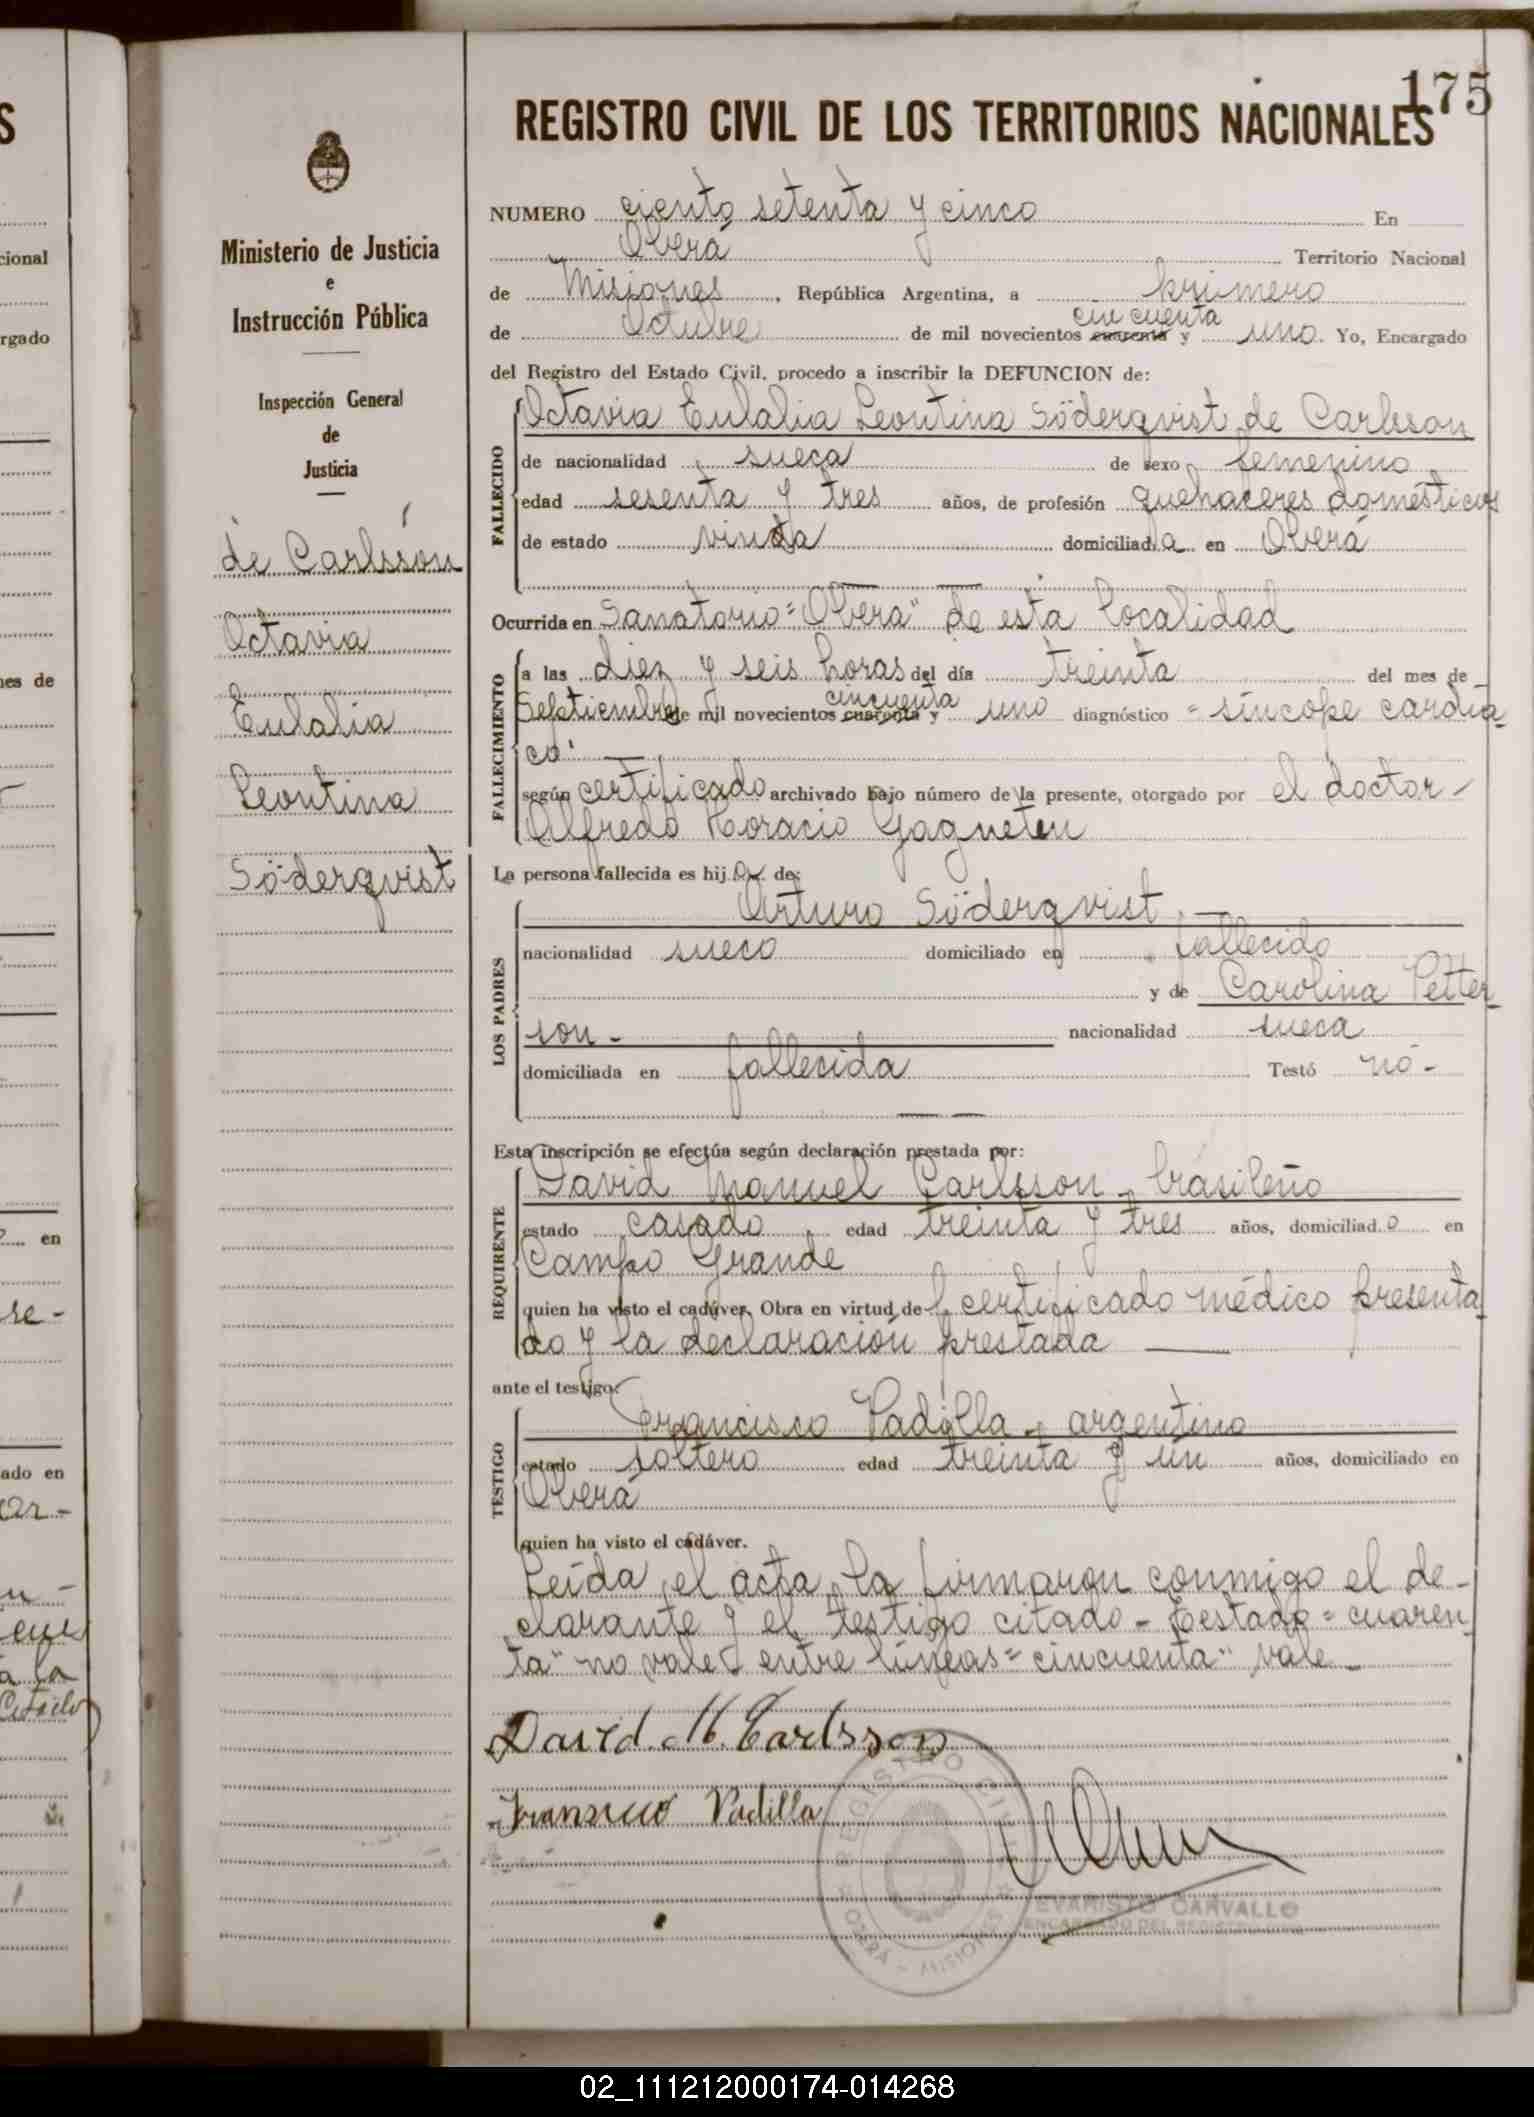 175
REGISTRO CIVIL DE LOS TERRITORIOS NACIONALES
Ministerio de Justicia
e
Instrucción Pública
Inspección General
de
Justicia
de Carlsson
Octavia
Eulalia
Leontina
Söderqvist
NUMERO ciento setenta y cinco En
Oberá Territorio Nacional
de Misiones, República Argentina, a primero
cincuenta
de Octubre de mil novecientos cuarenta y uno. Yo, Encargado
del Registro del Estado Civil, procedo a inscribir la DEFUNCION de:
FALLECIDO
Octavia Eulalia Leontina Söderqvist de Carlsson
de nacionalidad sueca de sexo femenino
edad sesenta y tres años, de profesión quehaceres domésticos
de estado viuda domiciliada en Oberá
Ocurrida en Sanatorio "Oberá" de esta localidad
FALLECIMIENTO
a las diez y seis horas del día treinta del mes de
cincuenta
Septiembre de mil novecientos cuarenta y uno diagnóstico "síncope cardía-
co"
según certificado archivado bajo número de la presente, otorgado por el doctor
Alfredo Horacio Gagneten
La persona fallecida es hija de:
LOS PADRES
Arturo Söderqvist
nacionalidad sueco domiciliado en fallecido
y de Carolina Petter-
son - nacionalidad sueca
domiciliada en fallecida Testó nó -
Esta inscripción se efectúa según declaración prestada por:
REQUIRENTE
David Manuel Carlsson - brasileño
estado casado edad treinta y tres años, domiciliado en
Campo Grande
quien ha visto el cadáver. Obra en virtud del certificado médico presenta-
do y la declaración prestada
ante el testigo:
TESTIGO
Francisco Padilla - argentino
estado soltero edad treinta y un años, domiciliado en
Oberá
quien ha visto el cadáver.
Leída el acta, la firmaron conmigo el de-
clarante y el testigo citado - Testado = cuaren-
ta" no vale - entre líneas = cincuenta" vale -
David. M. Carlsson
Fransisco Padilla
REGISTRO CIVIL
OBERA - MISIONES
EVARISTO CARVALLO
ENCARGADO DEL REGISTRO CIVIL
cional
rgado
nes de
en
se-
ado en
ar-
a la
citado
02_111212000174-014268